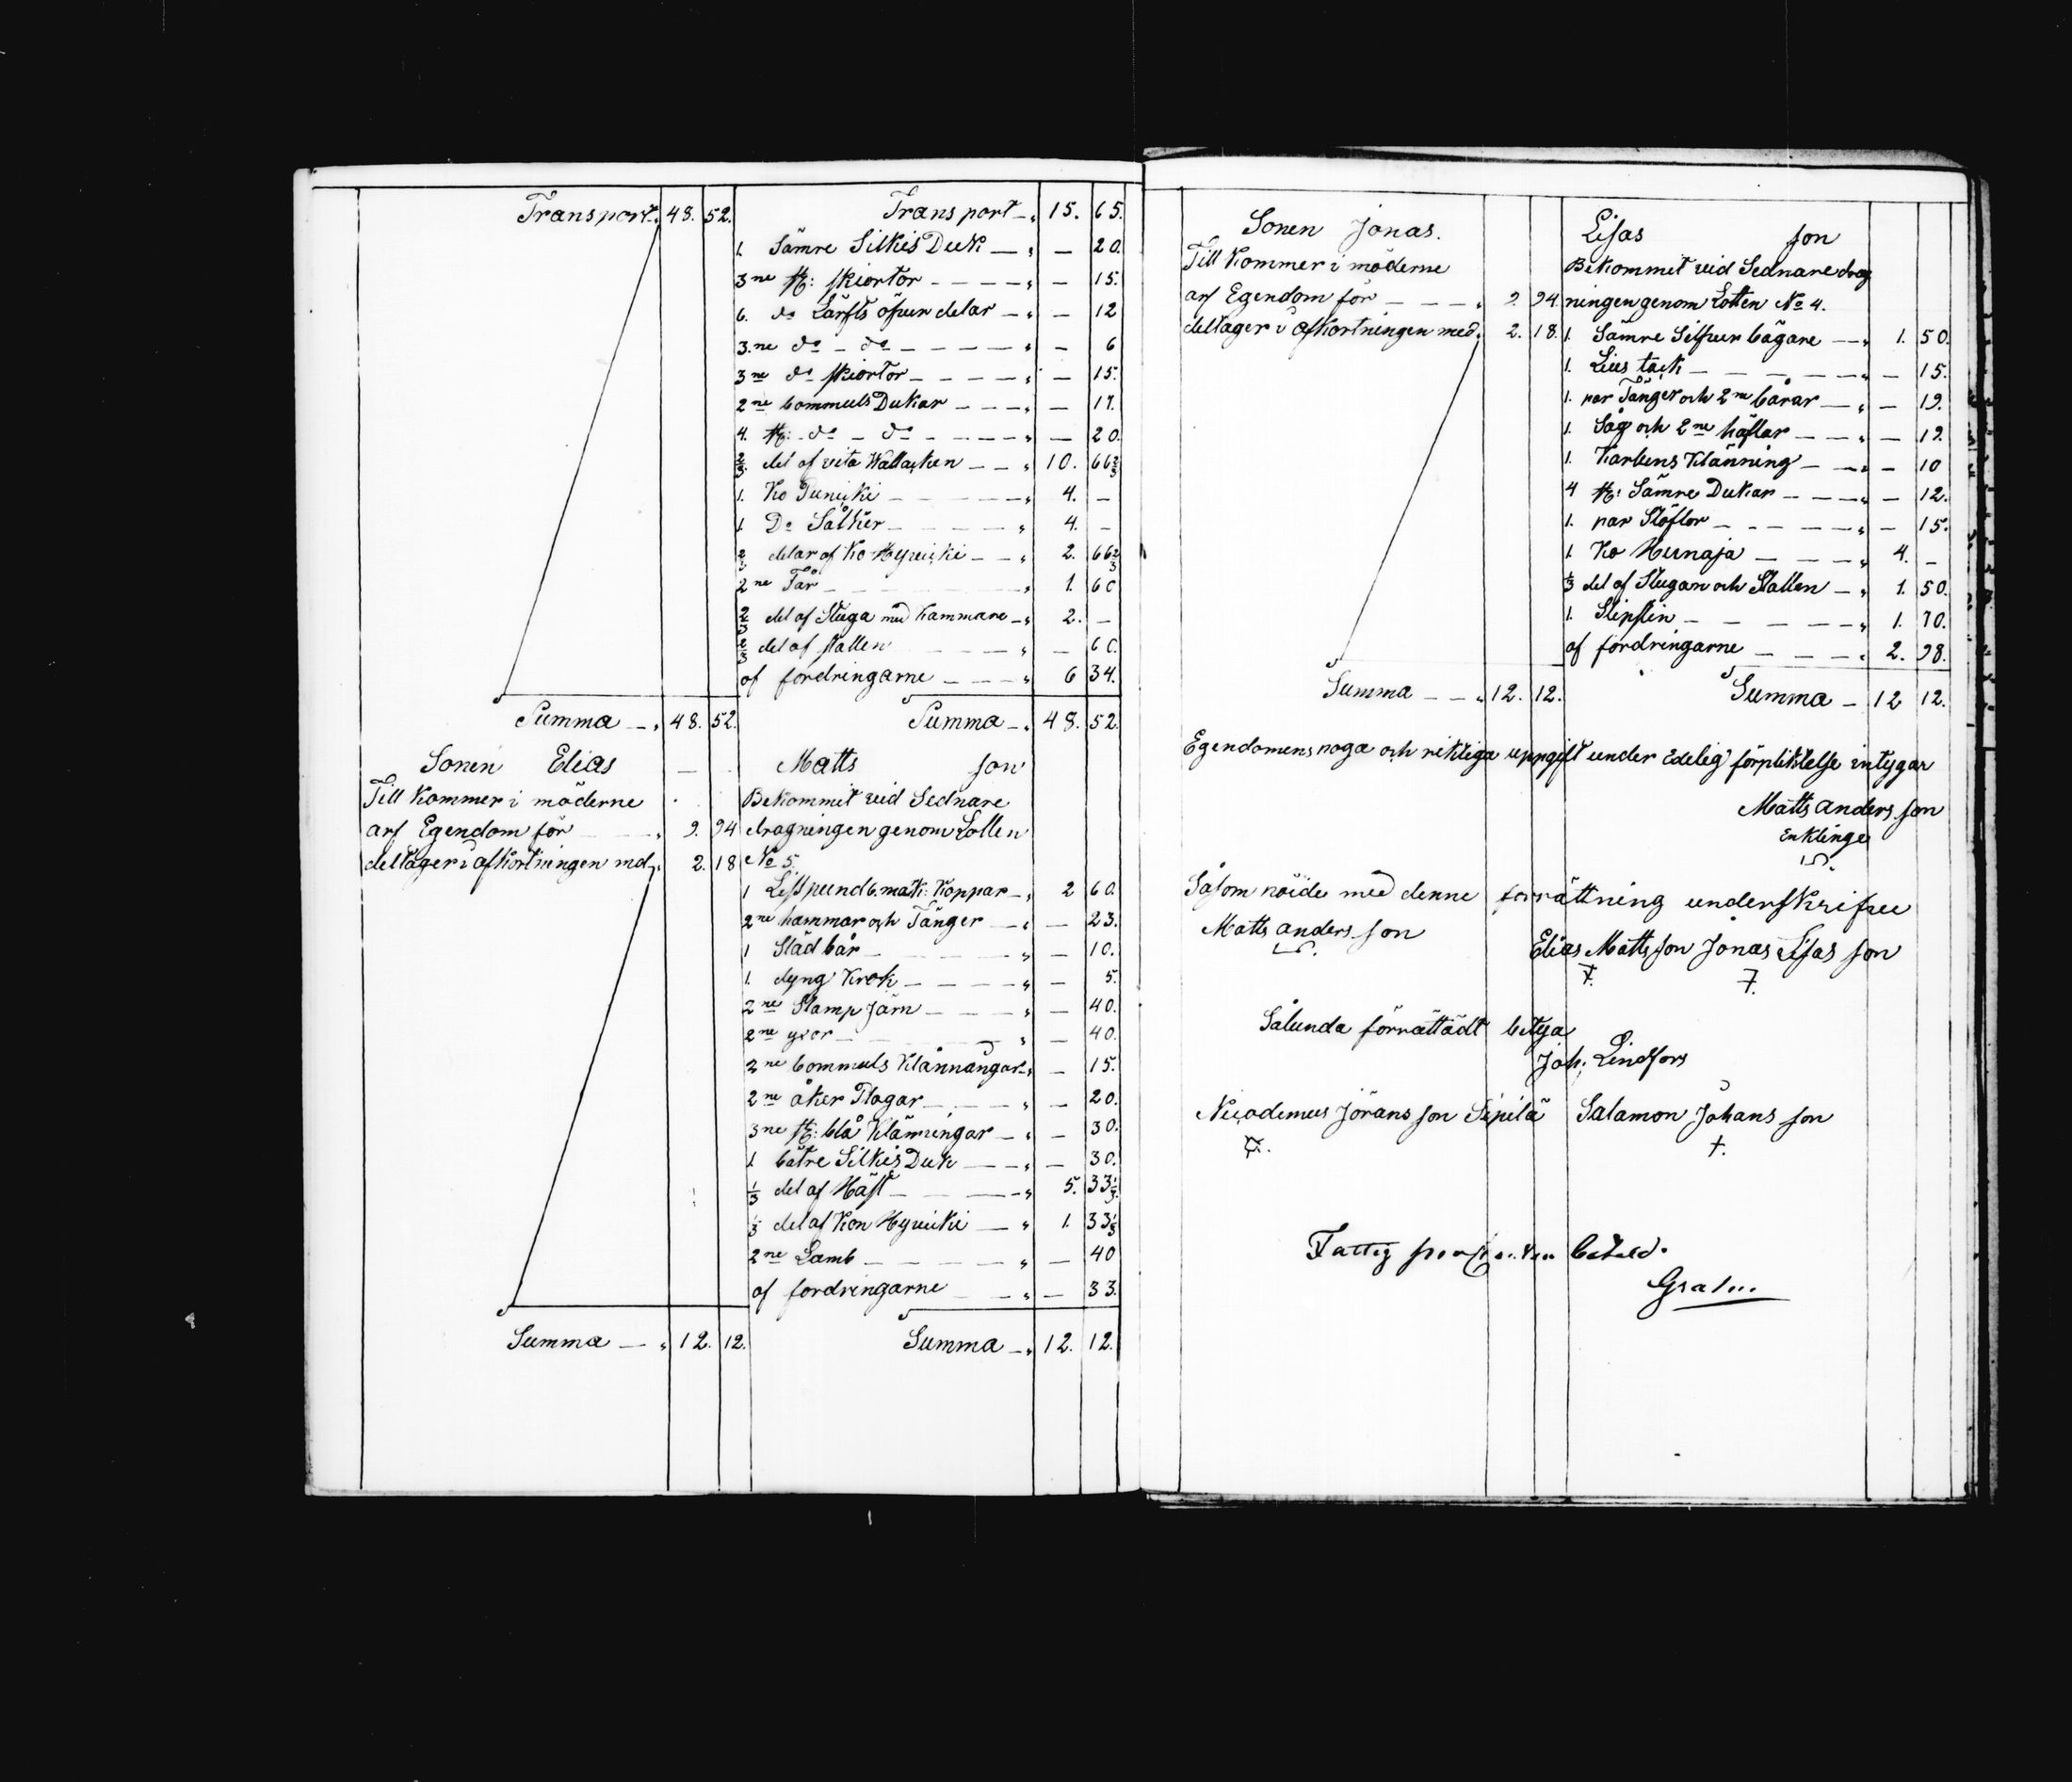 Transport 48. 52.
Transport 15. 65.
1. Sämre Silkis Duk — 20.
3ne st: skiortor — 15.
6. do Lärfts öfver delar — 12
3.ne do - do — 6
3ne do skiortor — 15.
2ne bommuls Dukar — 17.
4. st: do - do — 20.
2/3 del af vita Wallacken 10. 66 2/3
1. Ko Punicki 4. —
1. Do Såtker 4. —
2/3 delar af Ko Hyvicki 2. 66 2/3
2ne Får 1. 60
2/3 del af Stuga med Kammare 2. —
2/3 del af stallen — 60.
af fordringarne 6 34.
Summa 48. 52.
Summa 48. 52.
Sonen Elias
Till Kommer i möderne
arf Egendom för 9. 94
deltager i afkortningen med 2. 18
Summa 12. 12.
Matts son
Bekommit vid Sednare
dragningen genom Lotten
No 5.
1 Lisspund 6. mark: Koppar 2 60.
2ne hammar och Tänger — 23.
1 Städ bår — 10.
1. dyng Krok — 5.
2ne Stamp Järn — 40.
2ne yxor — 40.
2ne bommuls Klännångar — 15.
2ne åker Plogar — 20.
3ne st: blå Klänningar — 30.
1. bätre Silkis Duk — 30.
1/3 del af Häst 5. 33 1/3
1/3 del af Kon Hyvicki 1. 33 1/3
2ne Lamb — 40
af fordringarne — 33.
Summa 12. 12.
Sonen Jonas.
Till Kommer i möderne
arf Egendom för 9. 94.
deltager i afkortningen med 2. 18.
Summa 12. 12.
Lisas son
Bekommit vid Sednare drag
ningen genom Lotten No 4.
1. Sämre Silfver bägare 1. 50.
1. Lius tack — 15.
1. par Tänger och 2ne bårar — 19.
1. Såg och 2ne höflar — 19.
1. Karlens Klänning — 10
4 st: Sämre Dukar — 12.
1. par Stöflor — 15.
1. Ko Hunaja 4. —
1/3 del af Stugan och Stallen 1. 50.
1. Slipsten 1. 70.
af fordringarne 2. 98.
Summa 12 12.
Egendomens noga och riktiga uppgift under Edelig förpliktelse intygar
Matts anders son
Enklinge
Såsom nöide med denne förrättning underskrifve
Matts anders son
Elias Matts son Jonas Lisas son
Sålunda förrättädt betyga
Joh: Lindfors
Nicodemus Jörans son Sipilä Salamon Johans son
Fattig procenten betald.